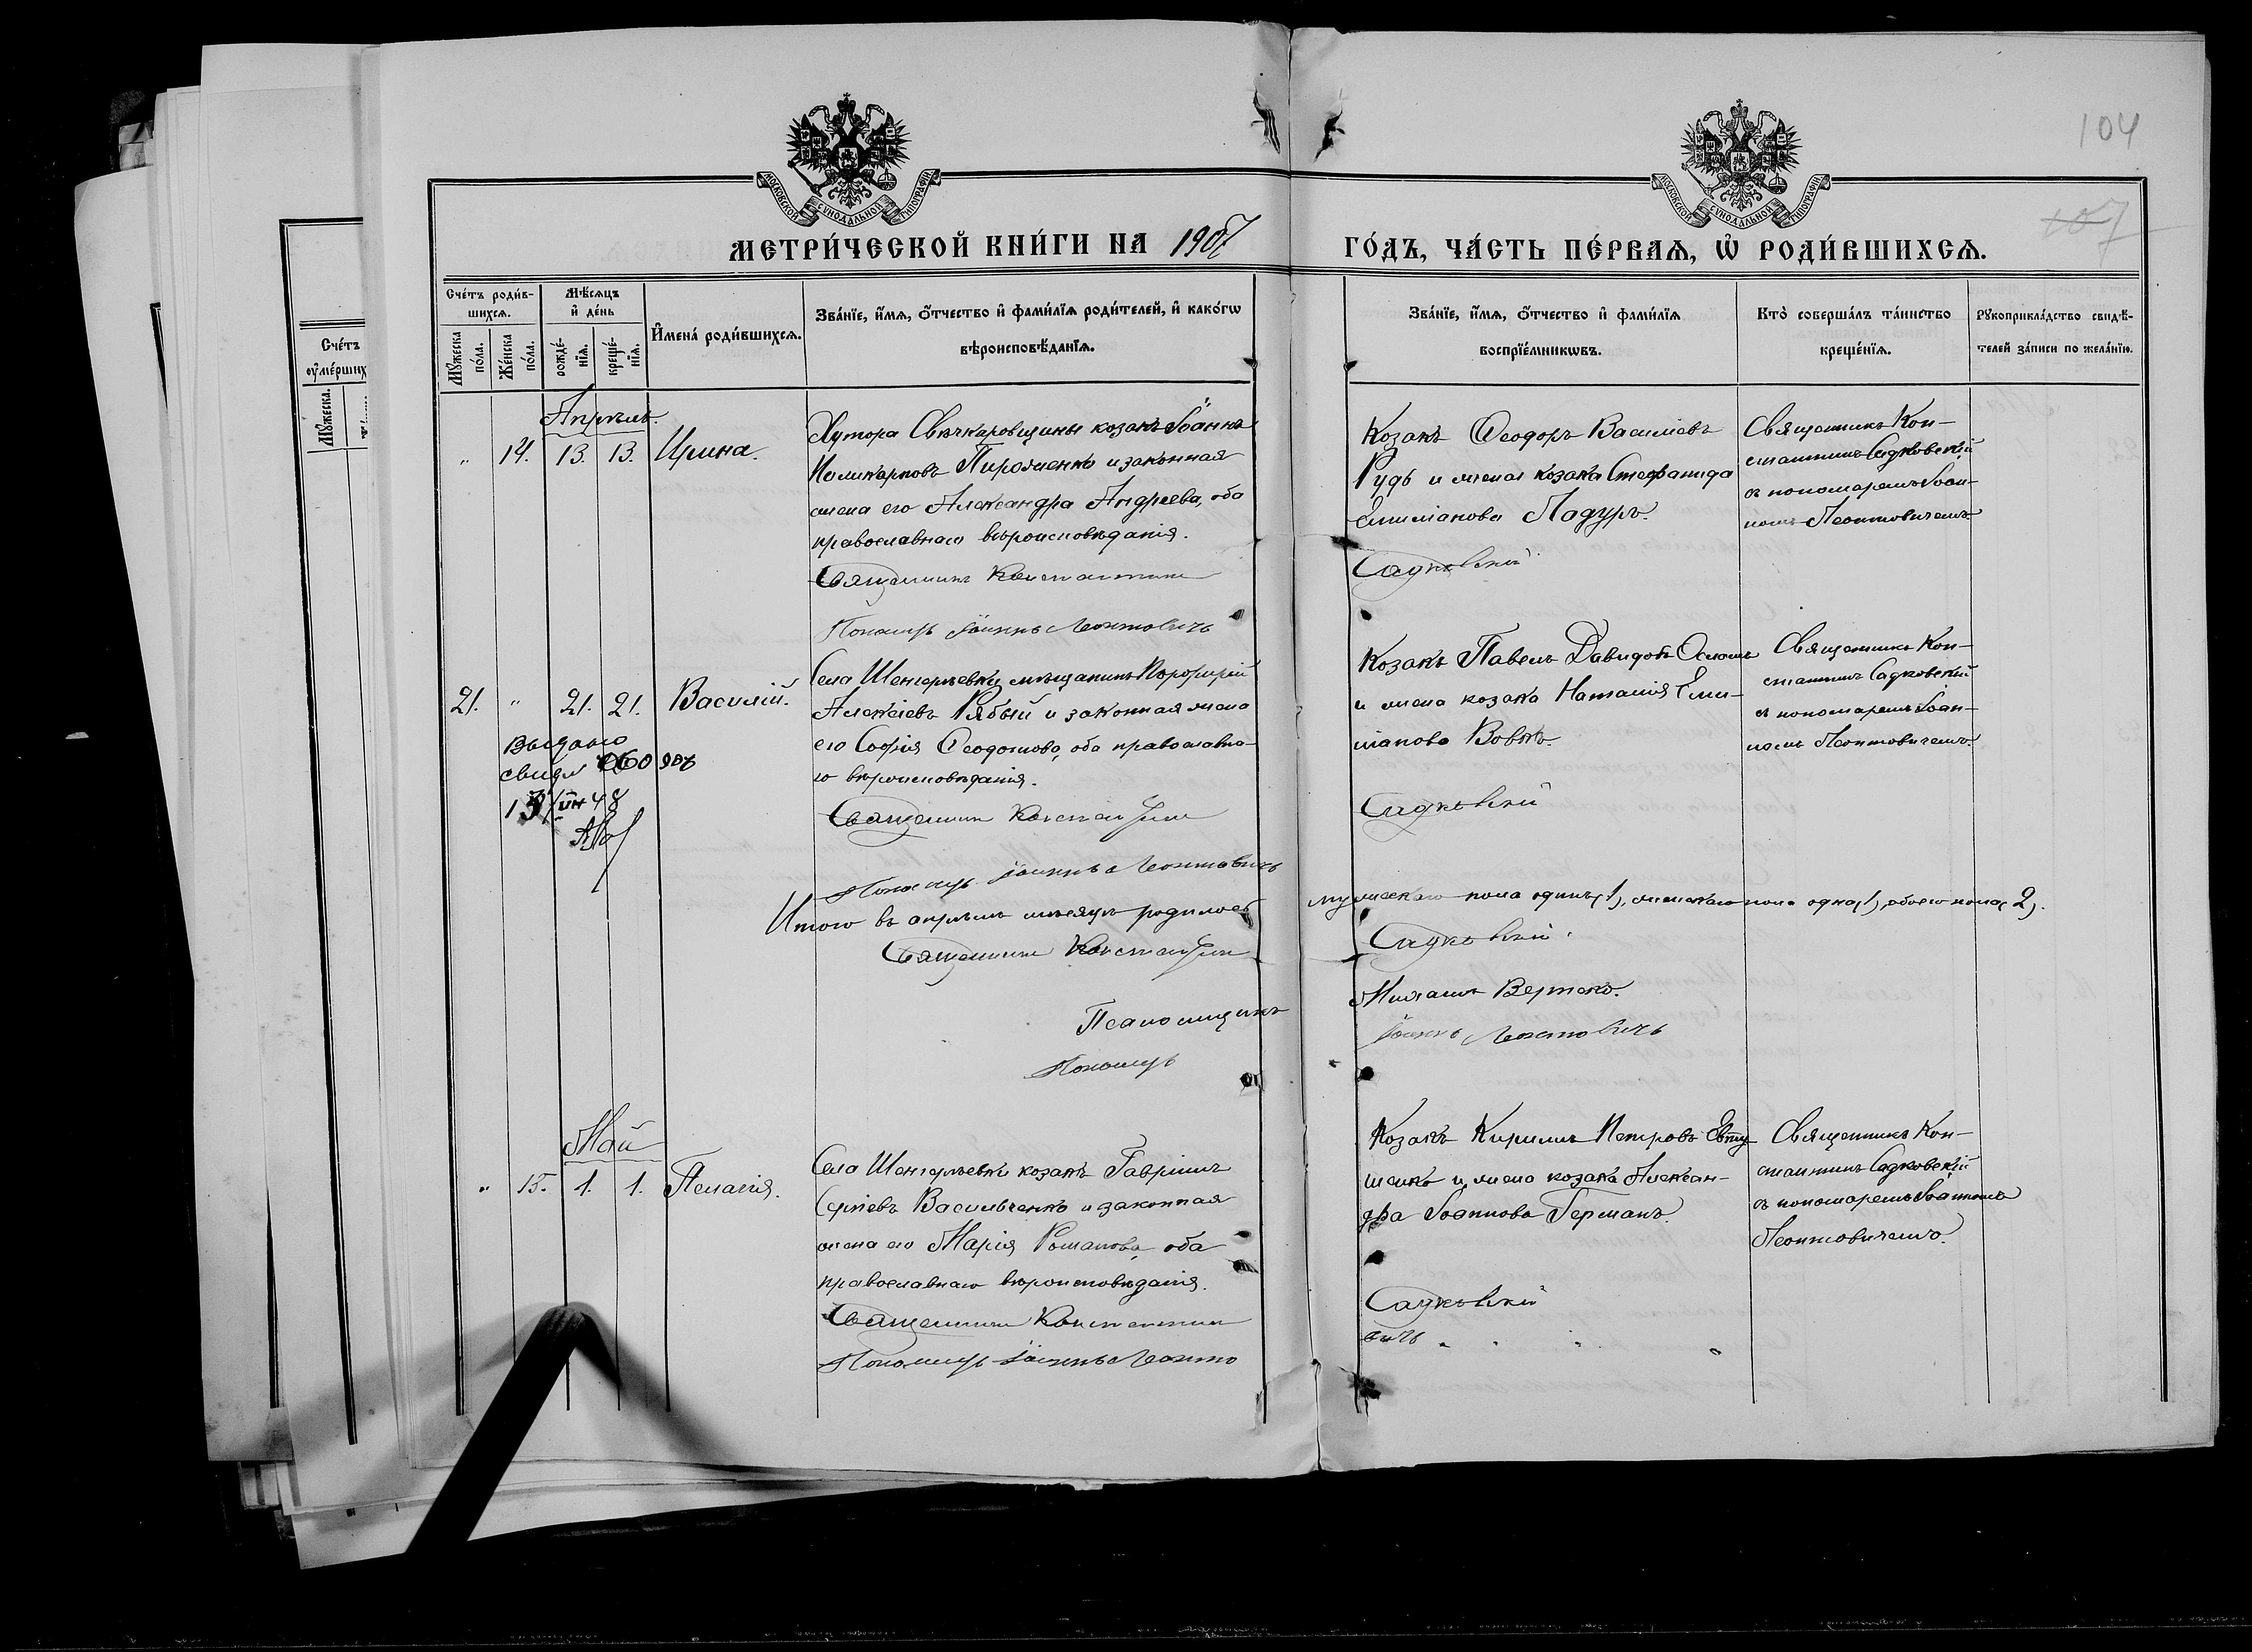 104
107
МОСКОВСКОЙ СѴНОДАЛЬНОЙ ТИПОГРАФІИ
МОСКОВСКОЙ СѴНОДАЛЬНОЙ ТИПОГРАФІИ
МЕТРИ́ЧЕСКОЙ КНИ́ГИ НА 1907
ГО́ДЪ, ЧА́СТЬ ПЕ́РВАѦ, Ѡ҆ РОДИ́ВШИХСѦ.
Сче́тъ
оу҆ме́рших
Мꙋ́жеска.
Сче́тъ роди́в-
шихсѧ.
Мꙋ́жеска
по́ла.
Же́нска
по́ла.
Мѣ́сѧцъ
и҆ де́нь
рожде́-
нїѧ.
креще́-
нїѧ.
И҆мена̀ роди́вшихсѧ.
Зва́нїе, и҆́мѧ, ѻ҆́тчество и҆ фами́лїѧ роди́телей, и҆ како́гѡ
вѣроисповѣ́данїѧ.
Зва́нїе, и҆́мѧ, ѻ҆́тчество и҆ фами́лїѧ
воспрїе́мникѡвъ.
Кто̀ соверша́лъ та́инство
креще́нїѧ.
Рꙋкоприкла́дство свидѣ́-
телей за́писи по жела́нїю.
Апрѣль.
„ 14. 13. 13. Ирина.
Хутора Свѣчкаровщины козакъ Іоаннъ
Поликарповъ Пироженко и законная
жена его Александра Андреева, оба
православнаго вѣроисповѣданія.
Священникъ Константинъ
Пономарь Іоаннъ Леонтовичъ
Козакъ Ѳеодоръ Василіевъ
Рудь и жена козака Стефанида
Емиліанова Ладуръ.
Садковскій
Священникъ Кон-
стантинъ Садковскій
съ пономаремъ Іоан-
номъ Леонтовичемъ.
21. „ 21. 21. Василій.
Выдано
13/
48
Села Шенгерѣевки мѣщанинъ Порфирій
Алексіевъ Рябый и законная жена
его Софія Ѳеодотова, оба православна-
го вѣроисповѣданія.
Священникъ Константинъ
Пономарь Іоаннъ Леонтовичъ
Козакъ Павелъ Давидовъ
и жена козака Наталія Еми-
ліанова Вовкъ.
Садковскій
Священникъ Кон-
стантинъ Садковскій
съ пономаремъ Іоан-
номъ Леонтовичемъ.
Итого въ апрѣлѣ мѣсяцѣ родилось мужескаго пола одинъ (1), женскаго пола одна (1), обоего пола (2).
Священникъ Константинъ Садковскій.
Псаломщикъ Михаилъ Вертело.
Пономарь Іоаннъ Леонтовичъ
Май
„ 15. 1. 1. Пелагія.
Села Шенгерѣевки козакъ Гавріилъ
Сергіевъ Васильченко и законная
жена его Марія Романова, оба
православнаго вѣроисповѣданія.
Священникъ Константинъ
Пономарь Іоаннъ Леонто
Козакъ Кириллъ Петровъ Евту-
шенко и жена козака Алексан-
дра Іоаннова Германъ.
Садковскій
вичъ
Священникъ Кон-
стантинъ Садковскій
съ пономаремъ Іоанномъ
Леонтовичемъ.